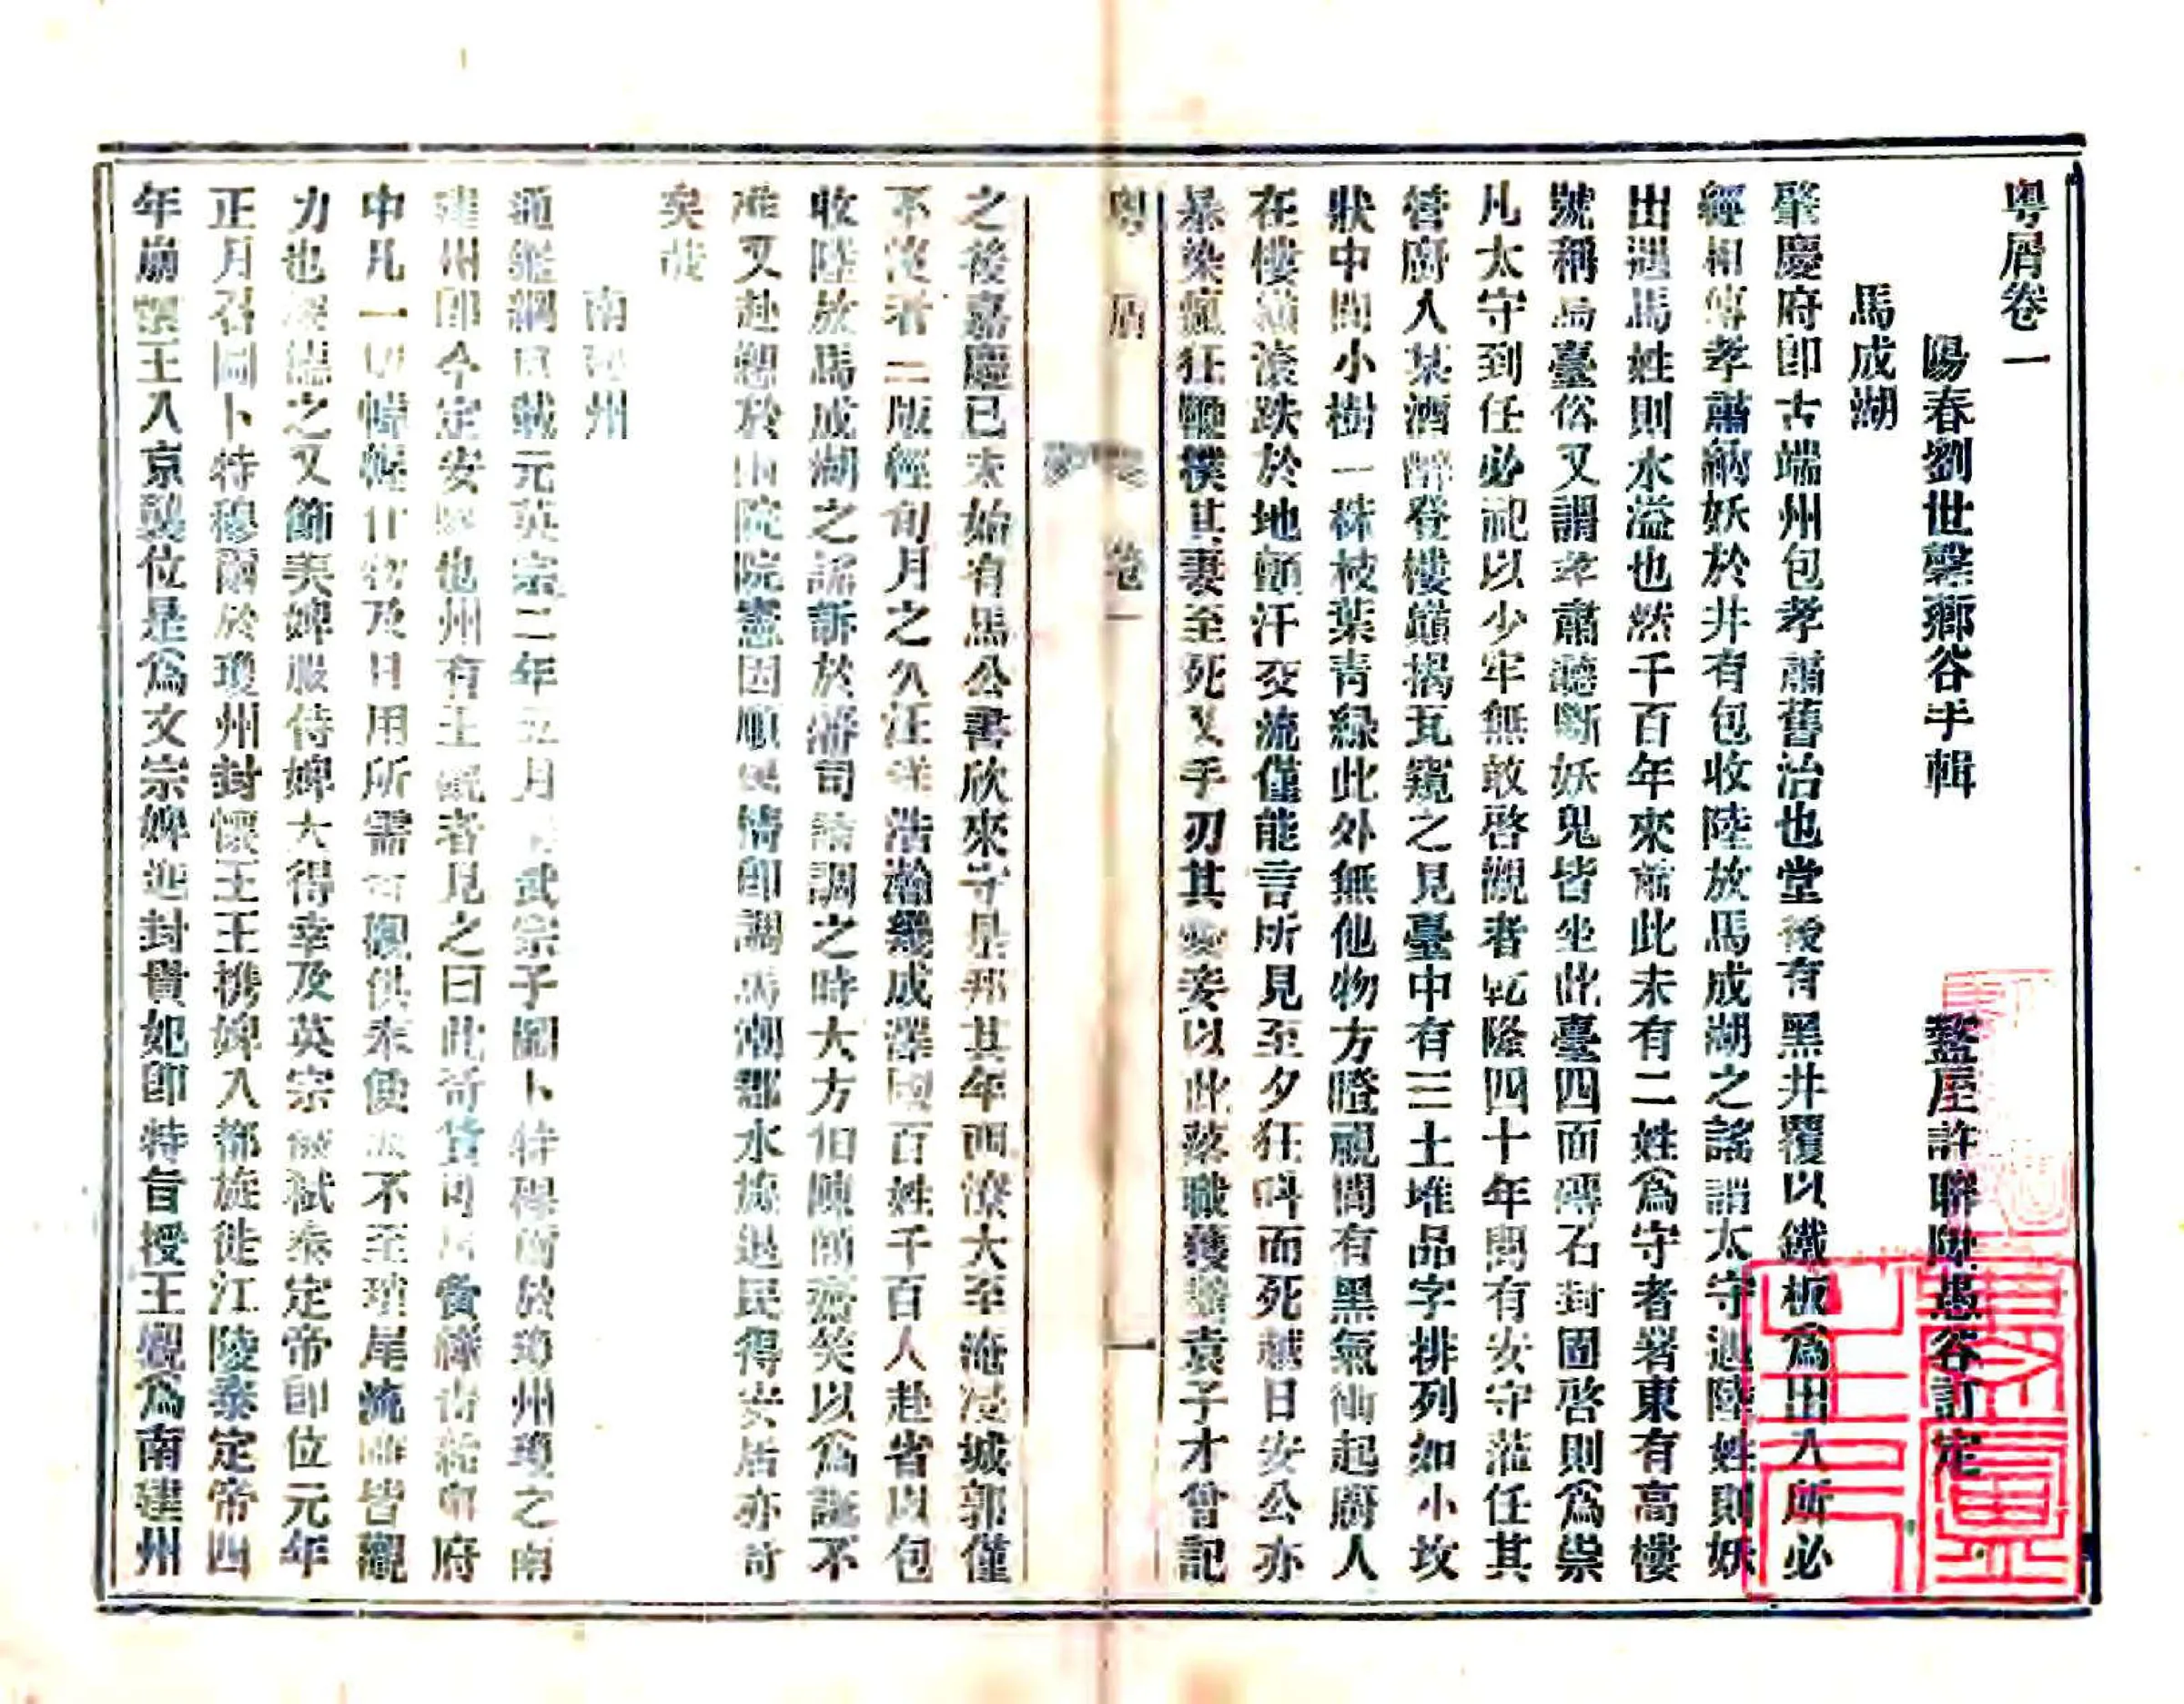 粵屑卷一
陽春劉世馨薌谷手輯
盩厔許聯陞愚谷訂定
馬成湖
肇慶府卽古端州包孝肅舊治也堂後有黑井覆以鐵板為出入所必
經相傳孝肅納妖於井有包收陸放馬成湖之謠謂太守遇陸姓則妖
出遇馬姓則水溢也然千百年來前此未有二姓為守者署東有高樓
號稱烏臺俗又謂孝肅聽斷妖鬼皆坐此臺四面磚石封固啓則為祟
凡太守到任必祀以少牢無敢啓觀者乾隆四十年間有安守蒞任其
督廚人某酒醉登樓巔揭瓦窺之見臺中有三土堆品字排列如小坟
狀中間小樹一株枝葉青綠此外無他物方瞪視間有黑氣衝起廚人
在樓巔滾跌於地顫汗交流僅能言所見至夕狂叫而死越日安公亦
暴染瘋狂鞭撲其妻至死又手刃其妾以此落職袁子才曾記
粵屑 卷一 一
之後嘉慶己未始有馬公書欣來守是邦其年西潦大至淹浸城郭僅
不沒者二版經旬月之久汪洋浩瀚幾成澤國百姓千百人赴省以包
收陸放馬成湖之謠訴於藩司請調之時大方伯陳簡齋笑以為誕不
准又赴愬於山院院憲因順民情卽調馬潮郡水旋退民得安居亦奇
矣哉
南建州
通鑑綱目載元英宗二年五月武宗子圖卜特穆爾於瓊州瓊之南
建州卽今定安縣也州有王觀者見之曰此奇貨可居費
中凡一切幃幄什物及日用所需供奉使不至瑣尾流離皆觀
力也之又飾美婢服侍婢大得幸及英宗被弒泰定帝卽位元年
正月召圖卜特穆爾於瓊州封懷王王攜婢入都旋徙江陵泰定帝四
年崩懷王入京襲位是為文宗婢進封貴妃卽特旨授王觀為南建州